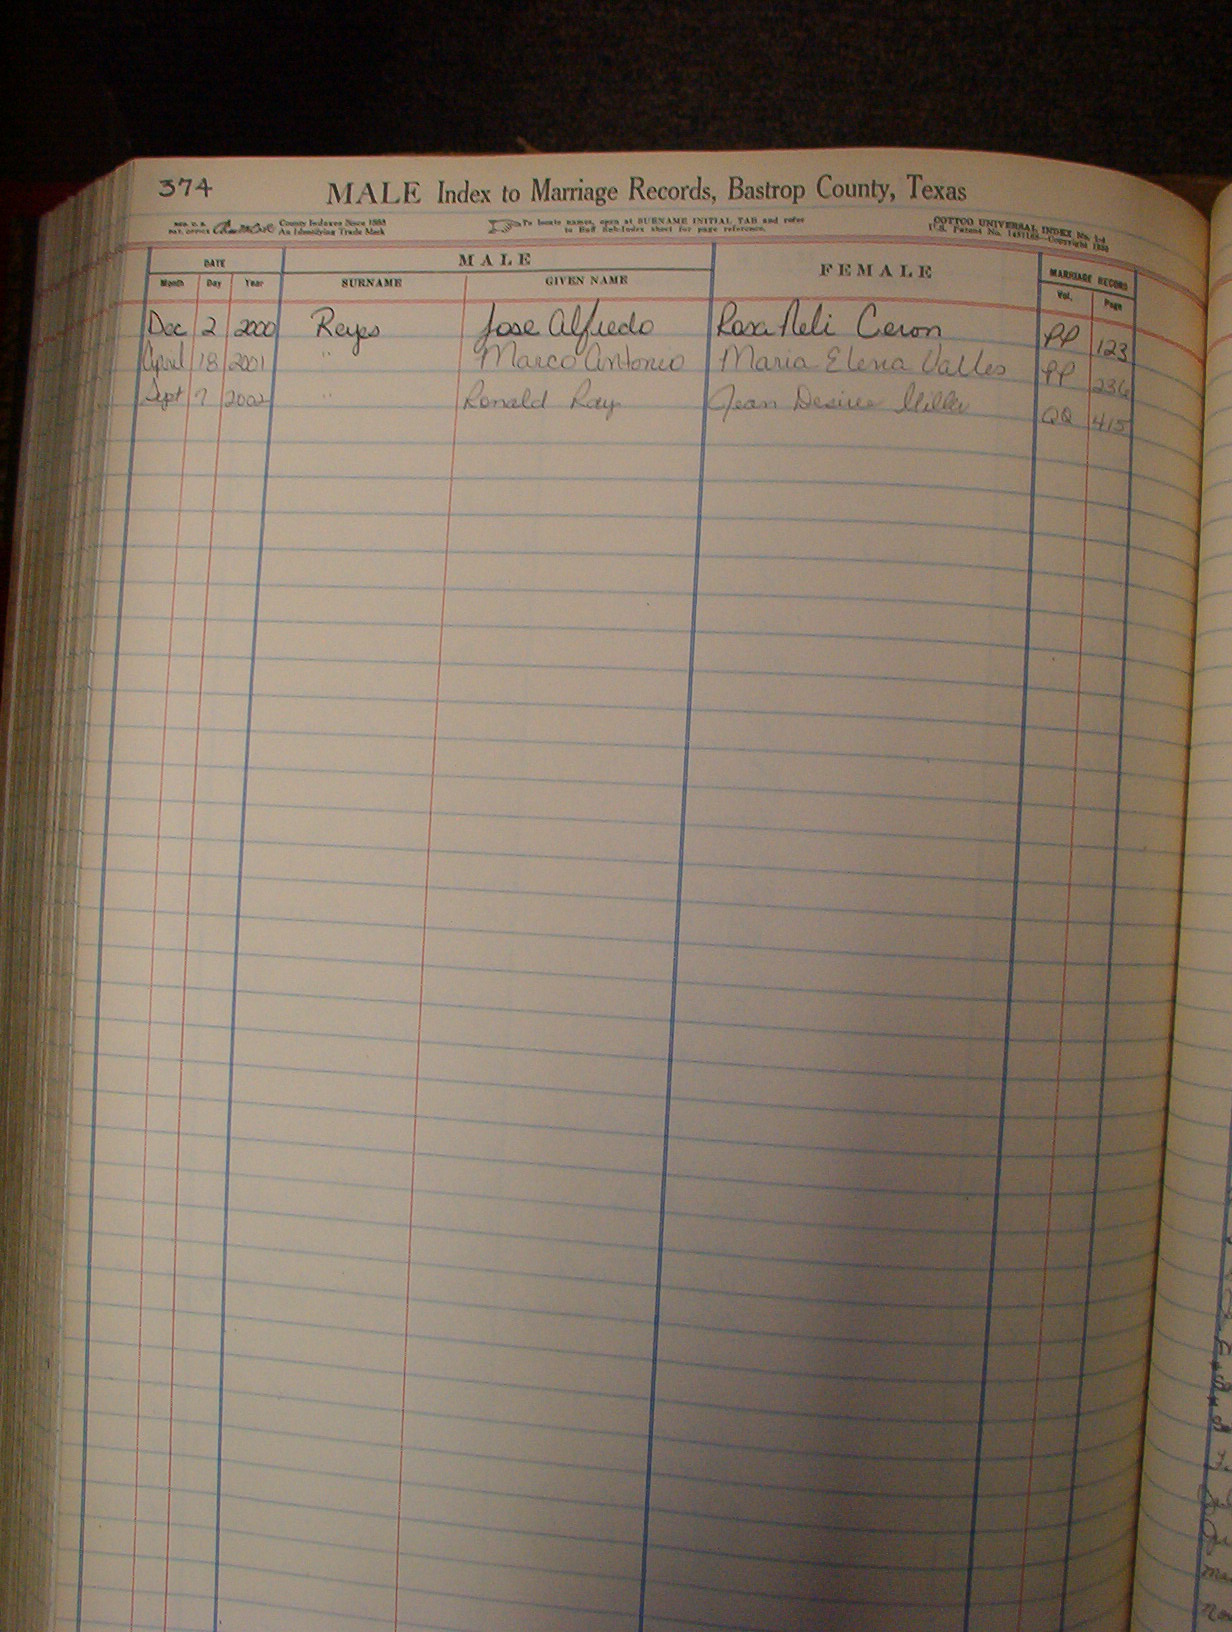 374
MALE Index to Marriage Records, Bastrop County, Texas
REG. U. S. PAT. OFFICE County Indexes Since 1888 An Identifying Trade Mark
To locate names, open at SURNAME INITIAL TAB and refer to Buff Sub-Index sheet for page reference.
COTTCO UNIVERSAL INDEX No. 1-4
U. S. Patent No. Copyright
DATE MALE FEMALE MARRIAGE RECORD
Month Day Year SURNAME GIVEN NAME Vol. Page
Dec 2 2000 Reyes Jose Alfredo Rosa Neli Ceron PP 123
April 18 2001 " Marco Antonio Maria Elena Valles PP 236
Sept 7 2002 " Ronald Ray Jean Desiree Miller QQ 415